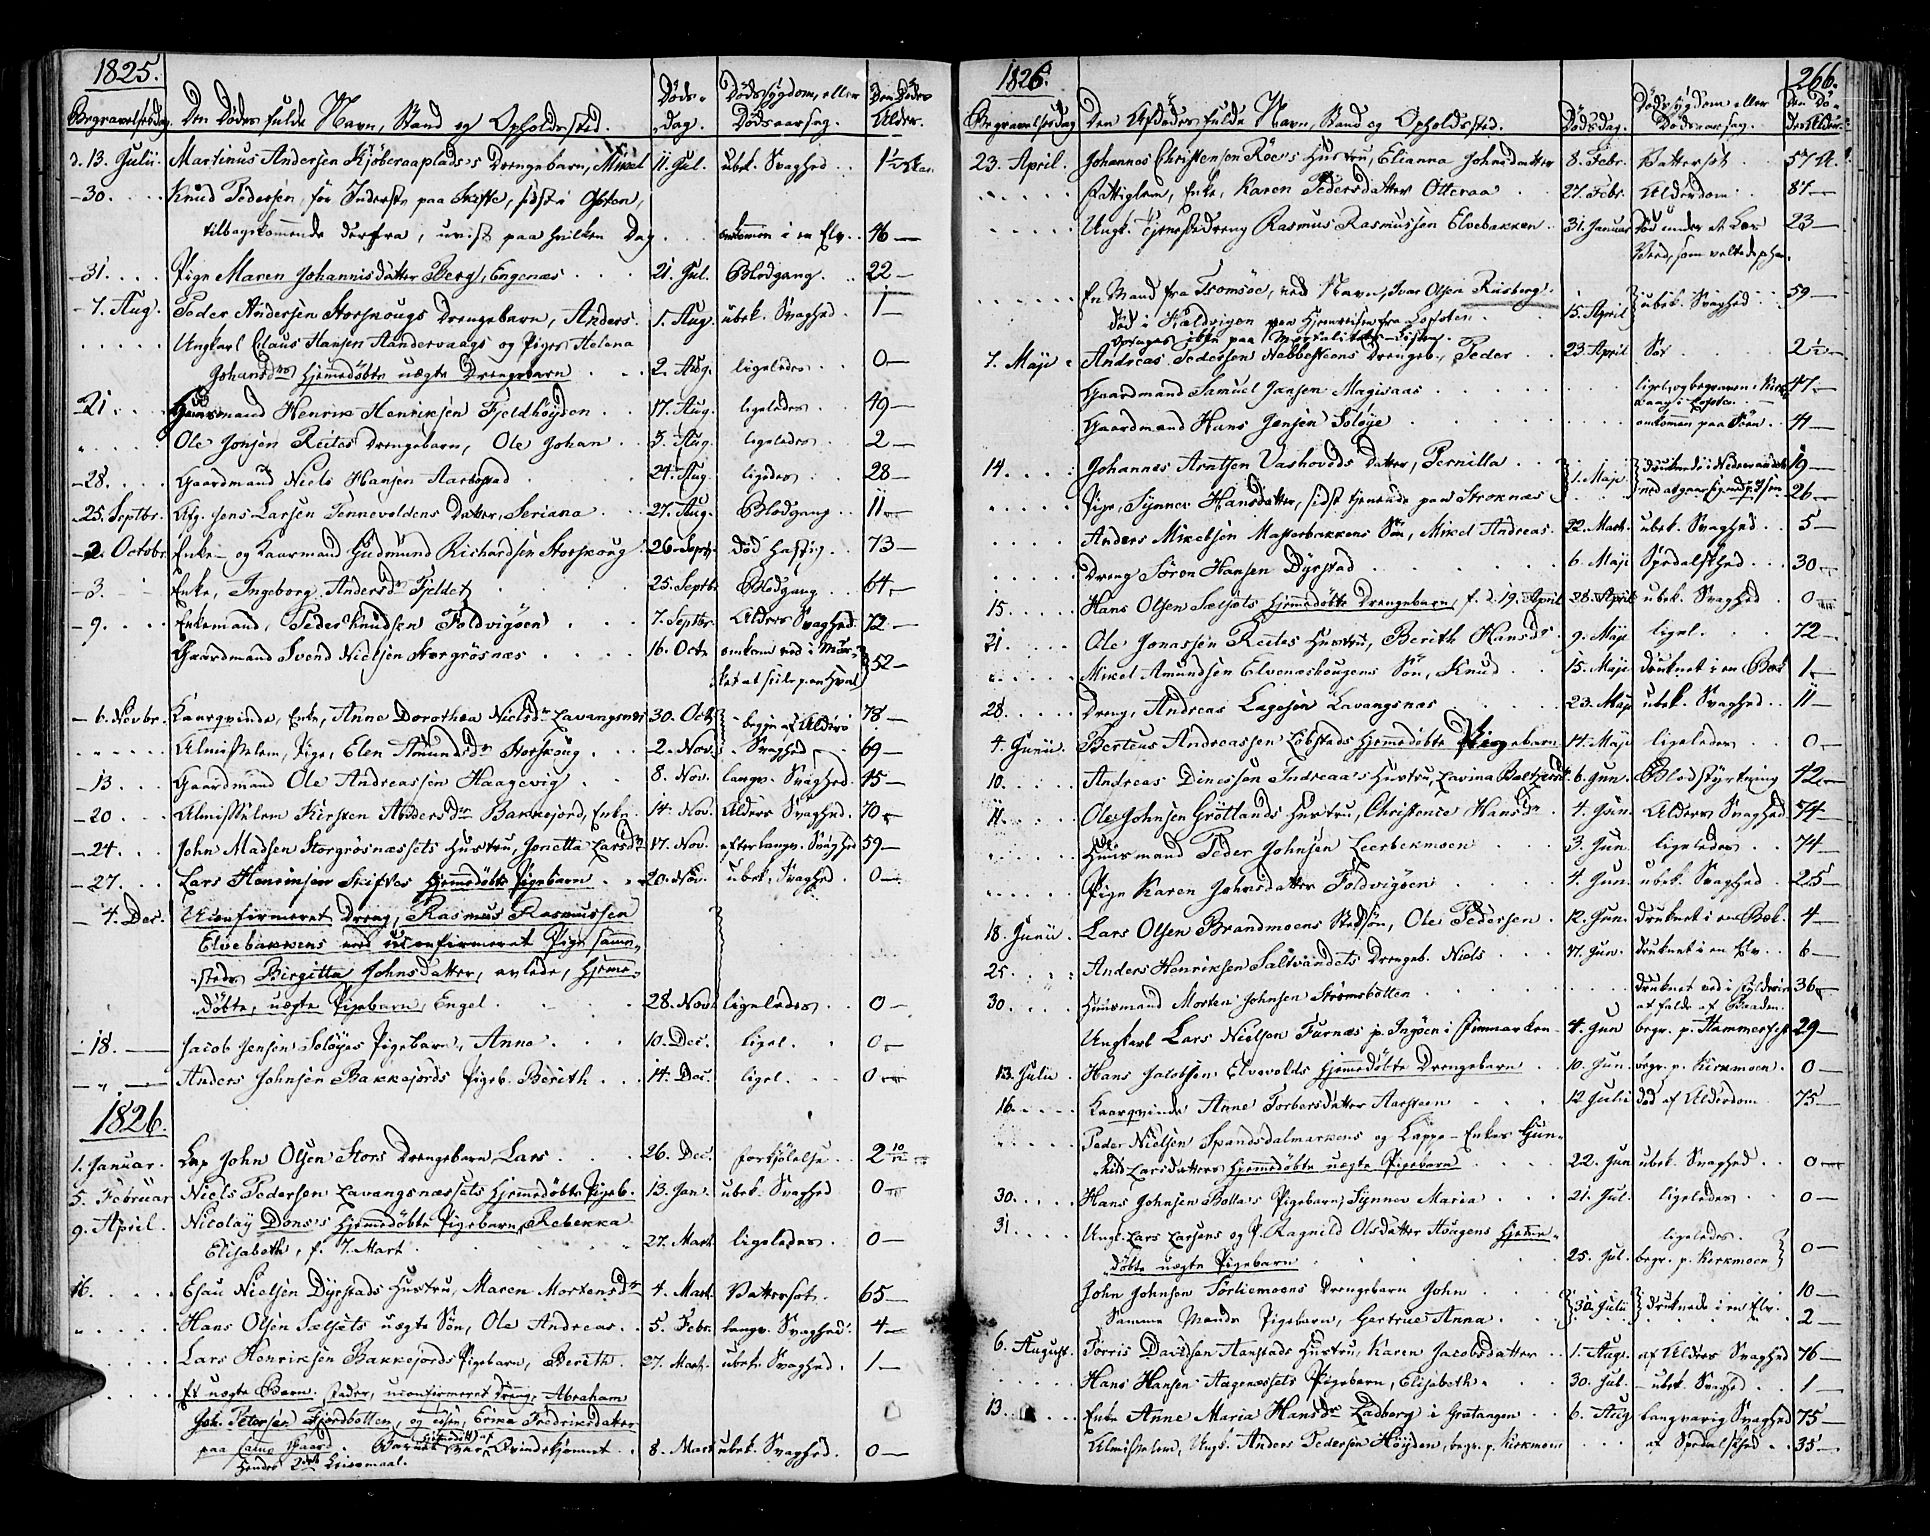 1825.
Begravelsesdag. Den Dødes fulde Navn, Stand og Opholdssted. Døds-dag. Dødssygdom, eller Dødsaarsag. Den Dødes Alder.
13. Julii. Martinus Andersen Kjøberaaplads's Drengebarn, Mikal 11. Jul. ubek. Svaghed
30. Knud Pedersen, før Inderste paa sidst i
tilbagekommende derfra, uvist paa hvilken Dag omkommen i en Elv 46
31. Pige Maren Johannisdatter Berg, Engenæs 21. Jul. Blodgang 22
7. Aug. Peder Andersen Storskougs Drengebarn, Anders 1. Aug. ubek. Svaghed 1
Ungkarl Claus Hansen Handervaags og Piges Helena
Johansdr Hjemmedøbte uægte Drengebarn 2. Aug. ligeledes 0
21. Huusmand Henrik Henriksen Fjeldhøyden 17. Aug. ligeledes 49
Ole Jonsen Reites Drengebarn, Ole Johan 5. Aug. ligeledes 2
28. Gaardmand Niels Hansen Aarbostad 24. Aug. ligeledes 28
25. Septbr. Afg. Jens Larsen Tennevoldens Datter, Seriana 27. Aug. Blodgang 11
2. Octobr. Enke- og Kaarmand Gudmund Richardsen Storskoug 26. Septbr. død hastig 73
3. Enke, Ingeborg Andersdr Fjeldet 25. Septbr. Blodgang 64
9. Enkemand, Peder Knudsen Foldvigøen 7. Septbr. Alders Svaghed 72
Gaardmand Svend Nielsen Storgrøsnæs 16. Octr. omkom ved i Mør-
ket at seile p. en Hval 52
6. Novbr. Kaarqvinde, Enke, Anne Dorothea Nielsdr Lavangsnæs 30. Oct. begge af Alders 78
Almisselem, Pige, Elen Amundsdr Storskoug 2. Nov. Svaghed 69
13. Gaardmand Ole Andreassen Haagevig 8. Nov. langv. Svaghed 45
20. Almisselem Kirsten Andersdr Bakkejord, Enke 14. Nov. Alders Svaghed 70
24. John Madsen Storgrøsnæssets Hustru, Jonetta Larsdr 17. Nov. efter langv. Svaghed 59
27. Lars Henriksen Skifvos Hjemmedøbte Pigebarn 20. Nov. ubek. Svaghed 0
4. Dec. Uconfirmeret Dreng, Rasmus Rasmussen
Elvebakkens med uconfirmeret Pige samme-
steds Birgitta Johnsdatter, avlede, Hjemme-
døbte, uægte Pigebarn, Engel 28. Nov. ligeledes 0
18. Jacob Jensen Soløyes Pigebarn, Anne 10. Dec. ligel. 0
Anders Johnsen Bakkejords Pigeb. Berith 14. Dec. ligel. 0
1826.
1. Januar. Lap John Olsen Stors Drengebarn Lars 26. Dec. Forkjølelse 2 10/12
5. Februar Niels Pedersen Lavangsnæssets Hjemmedøbte Pigeb. 13. Jan. ubek. Svaghed 0
9. April. Nicolay Dons's Hjemmedøbte Pigebarn Rebekka
Elisabeth, f. 7. Mart 27. Mart. ligeledes 0
16. Esau Nielsen Dyrstads Hustru, Maren Mortensdr 4. Mart. Vattersot 65
Hans Olsen Sælsæts uægte Søn, Ole Andreas 5. Febr. langv. Svaghed 4
Lars Henriksen Bakkejords Pigebarn, Berith 27. Mart. ubek. Svaghed 1
Et uægte Barn. Fader, uconfirmeret Dreng, Abraham
Joh. Petersen Fjordbotten, og Pigen, Erika Fredriksdatter
paa samme Gaard. Barnet var hjemmedøbt af Qvindekjønnet 8. Mart ubek. Svaghed 0
Hendes 2det Leiermaal.
1826. 266.
Begravelsesdag Den Afdødes fulde Navn, Stand og Opholdssted. Dødsdag. Dødssygdom eller Dødsaarsag. Den Dødes Alder.
23. April. Johannes Christensen Røe's Hustru, Elianna Johnsdatter 8. Febr. Vattersot 57 A.
Fattiglem, Enke, Karen Pedersdatter Otteraa 27. Febr. Alderdom 87
Ungk. Tjenestedreng Rasmus Rasmussen Elvebakken 31. Januar Død under et Læs
Veed, som veltede p. ham 23
En Mand fra Tromsøe, ved Navn, Ivar Olsen Risberg
død i Kjeldvigen paa Hjemreisen fra Lofoten 15. April ubek. Svaghed 59
optages ikke paa Mortalitets-Listen.
7. Maji Andreas Pedersen Nebbestens Drengeb., Peder 23. April Sot 2½
Gaardmand Samuel Jansen Magisaas ligel., og begraven i Kirke-
vaag i Lofoten 47
Gaardmand Hans Jensen Soløye omkommen paa Søen 41
14. Johannes Arntsen Vashoveds Datter, Pernilla druknede i Nedrevandet 19
Pige, Synnev Hansdatter, sidst tjenende paa Stroknæs 1. Maji ved at gaae igjennem Isen 26
Anders Mikelsen Masterbakkens Søn, Mikel Andreas 22. Mart. ubek. Svaghed 5
Dreng Søren Hansen Dyrstad 6. Maji Spedalskhed 30
15. Hans Olsen Sælsæts Hjemmedøbte Drengebarn, f. d. 19. April 28. April ubek. Svaghed 0
21. Ole Jonassen Reites Hustru, Berith Hansdr 9. Maji ligel. 72
Mikel Amundsen Elvenæshougens Søn, Knud 15. Maji druknet i en Bæk 1
28. Dreng, Andreas Lagesen Lavangsnæs 23. Maji ubek. Svaghed 11
4. Junii Berteus Andreassen Løbstads Hjemmedøbte Pigebarn 14. Maji ligeledes 0
10. Andreas Dinessen Indreaa's Hustru, Lavina Baltzersdr 6. Jun. Blodstyrtning 42
11. Ole Johnsen Grötlands Hustru, Christence Hansdr 4. Jun. Alders Svaghed 54
Huusmand Peder Johnsen Leerbekmoen 3. Jun. ligeledes 74
Pige Karen Johnsdatter Foldvigøen 4. Jun. ubek. Svaghed 25
18. Junii. Lars Olsen Brandmoens Stedsøn, Ole Pedersen 12. Jun. druknet i en Bæk 4
25. Anders Henriksen Saltvandets Drengeb. Niels 17. Jun. druknet i en Elv 6
30. Huusmand Morten Johnsen Strømsbotten druknet ved i
at falde af Baaden 36
Ungkarl Lars Nielsen Furnæs p. Ingøen i Finmarken 4. Jun begr. p. Hammerfest 29
13. Julii Hans Jacobsen Elvevolds Hjemmedøbte Drengebarn 10. Jun. begr. p. Kirkmoen 0
16. Kaarqvinde Anne Torbersdatter Aarsteen 12 Julii død af Alderdom 75
Peder Nielsen Spandsdalmarkens og Lappe-Enkes Gun-
hild Larsdatters Hjemmedøbte uægte Pigebarn 22. Jun ubek. Svaghed 0
30. Hans Johnsen Bolla's Pigebarn, Synnev Maria 21. Jul. ligeledes 0
31. Ungk. Lars Larsens og P. Ragnild Olsdatter Hougens Hjemme-
døbte uægte Pigebarn 25. Jul. ligeledes. begr. p. Kirkmoen 0
John Johnsen Sørliemoens Drengebarn John 30. Julii druknede i en Elv. 10
Samme Mands Pigebarn, Gertrue Anna 2
6. August. Tørris Davidsen Aanstads Hustru, Karen Jacobsdatter 1. Aug. af Alders Svaghed 76
Hans Hansen Aagenæssets Pigebarn, Elisabeth 30. Jul. ubek. Svaghed 1
13. Enke Anne Maria Hansdr Ladberg i Gratangen 6. Aug langvarig Svaghed 75
Almisselem, Ungk. Anders Pedersen Høyden, begr. p. Kirkmoen af Spedalskhed 35